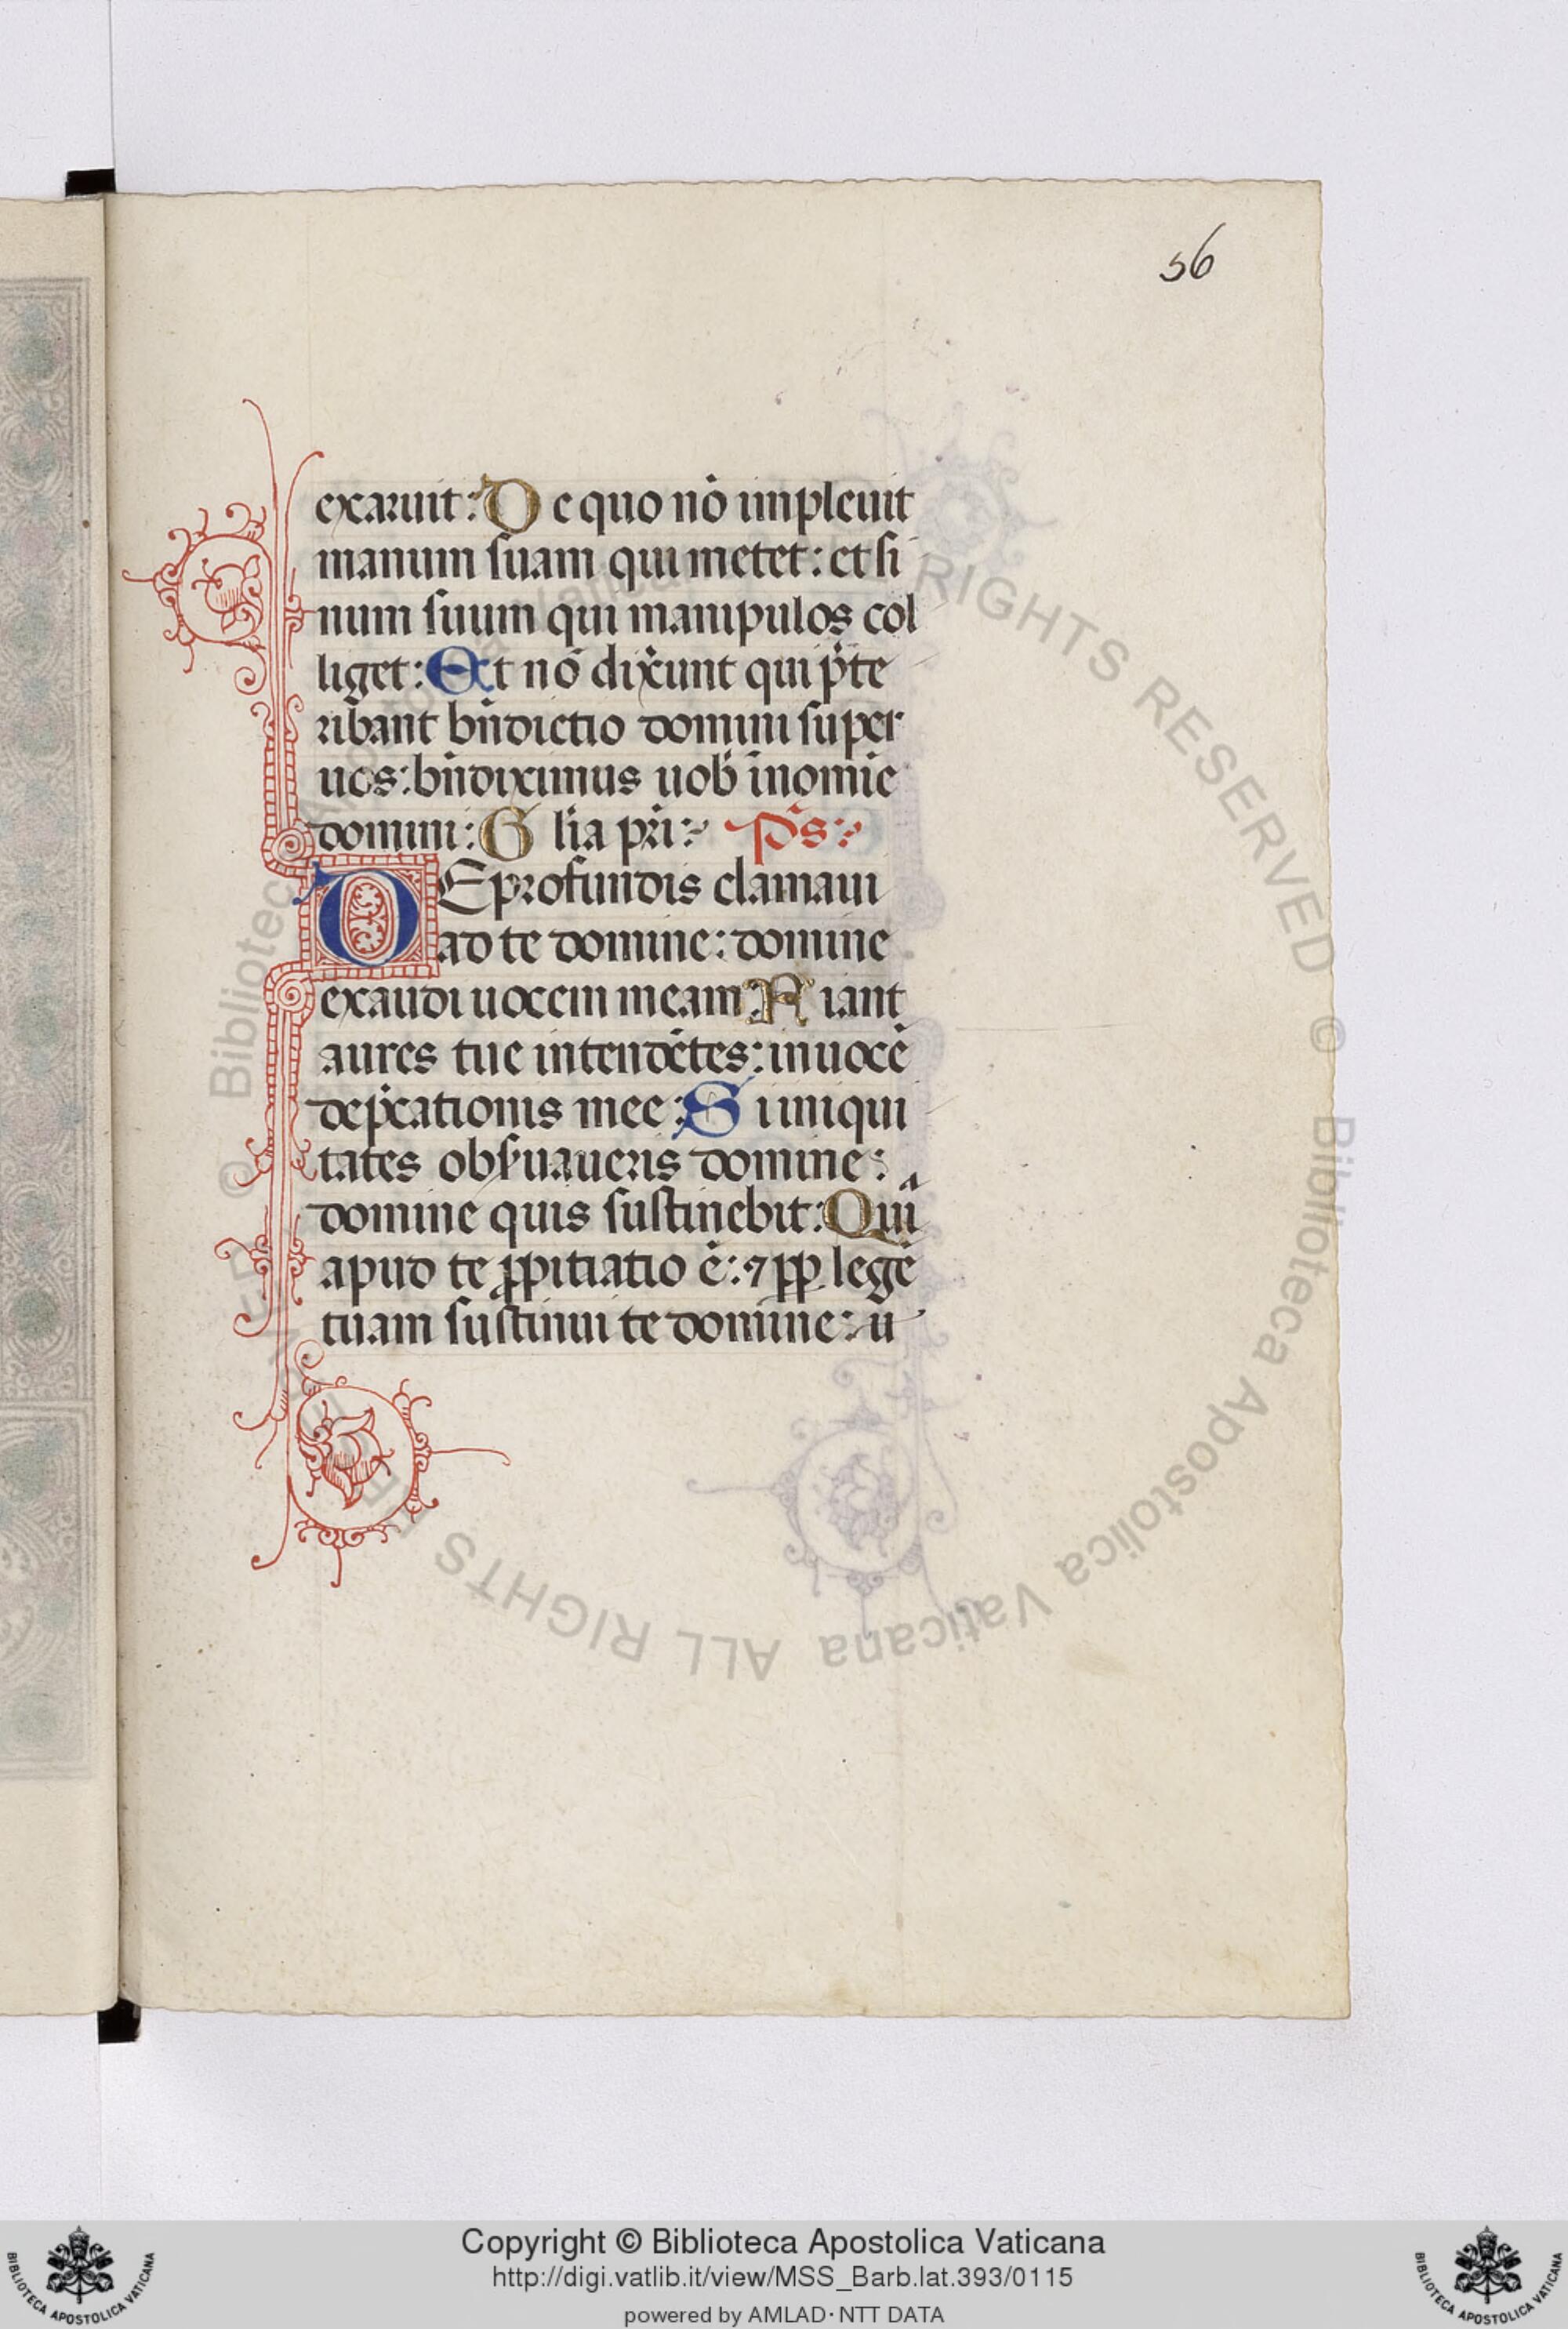 56
exaruit: De quo nō impleuit
manum suam qui metet: et si
num suum qui manipulos col
liget: Et nō dix̄unt qui p̄te
ribant bn̄dictio domini super
uos: bn̄diximus uob̄ inomīe
domini: Glīa pr̄i: Ps̄:
DE profundis clamaui
ad te domine: domine
exaudi uocem meam: Fiant
aures tue intendētes: in uocē
dep̄cationis mee: Si iniqui
tates obs̄uaueris domine:
domine quis sustinebit: Quiᵃ
apud te ꝓpitiatio ē: ⁊ ꝓp̱ legē
tuam sustinui te domine: u
© Biblioteca Apostolica Vaticana ALL RIGHTS RESERVED © Biblioteca Apostolica Vaticana ALL RIGHTS RESERVED
Copyright © Biblioteca Apostolica Vaticana
http://digi.vatlib.it/view/MSS_Barb.lat.393/0115
powered by AMLAD·NTT DATA
BIBLIOTECA APOSTOLICA VATICANA
BIBLIOTECA APOSTOLICA VATICANA